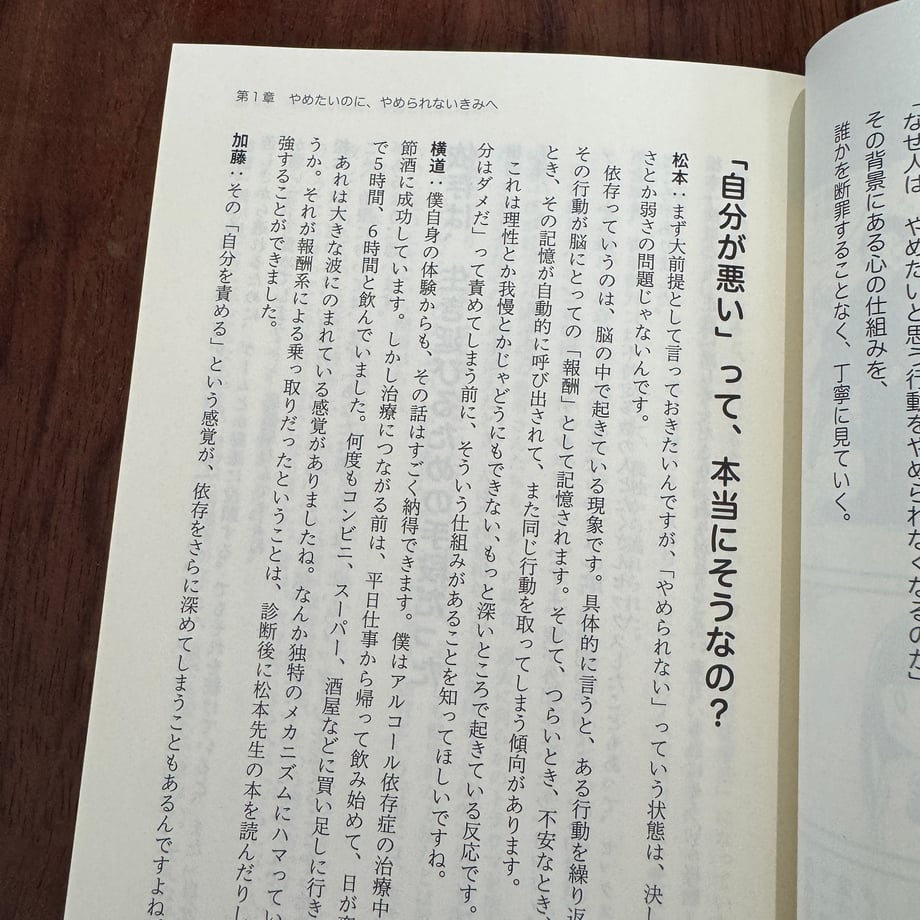 その背景にある心の仕組みを、
誰かを断罪することなく、丁寧に見ていく。
第1章 やめたいのに、やめられないきみへ
「自分が悪い」って、本当にそうなの?
松本:まず大前提として言っておきたいんですが、「やめられない」っていう状態は、決し
さとか弱さの問題じゃないんです。
依存っていうのは、脳の中で起きている現象です。具体的に言うと、ある行動を繰り返
その行動が脳にとっての「報酬」として記憶されます。そして、つらいとき、不安なとき、
とき、その記憶が自動的に呼び出されて、また同じ行動を取ってしまう傾向があります。
これは理性とか我慢とかじゃどうにもできない、もっと深いところで起きている反応です。
分はダメだ」って責めてしまう前に、そういう仕組みがあることを知ってほしいですね。
横道:僕自身の体験からも、その話はすごく納得できます。僕はアルコール依存症の治療中
節酒に成功しています。しかし治療につながる前は、平日仕事から帰って飲み始めて、日が
で5時間、6時間と飲んでいました。何度もコンビニ、スーパー、酒屋などに買い足しに行き
あれは大きな波にのまれている感覚がありましたね。なんか独特のメカニズムにハマってい
うか。それが報酬系による乗っ取りだったということは、診断後に松本先生の本を読んだりし
強することができました。
加藤:その「自分を責める」という感覚が、依存をさらに深めてしまうこともあるんですよね。